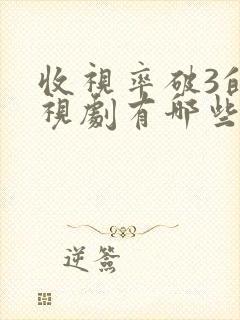 收視率破3的
視劇有哪些
逆簽